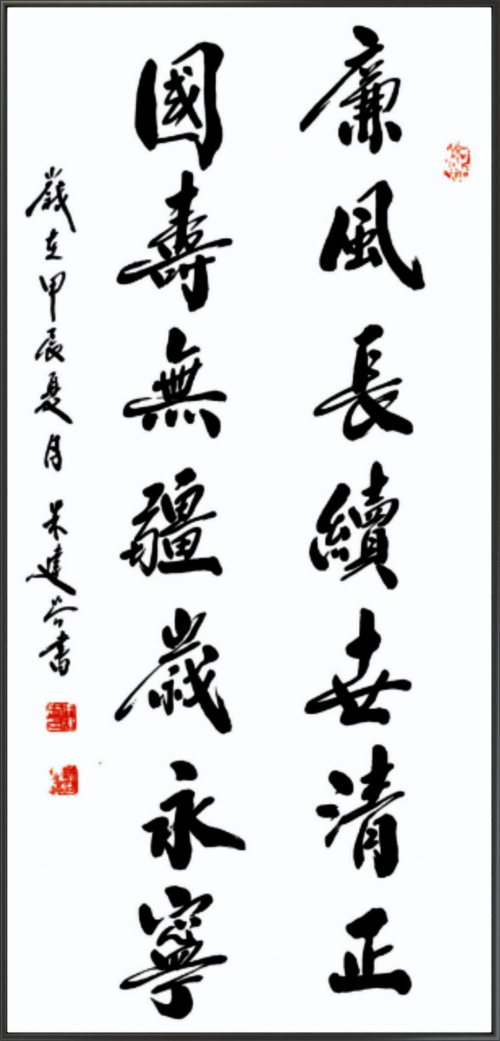 廉風長續世清正
國壽無疆歲永寧
歲在甲辰夏月 朱建谷書